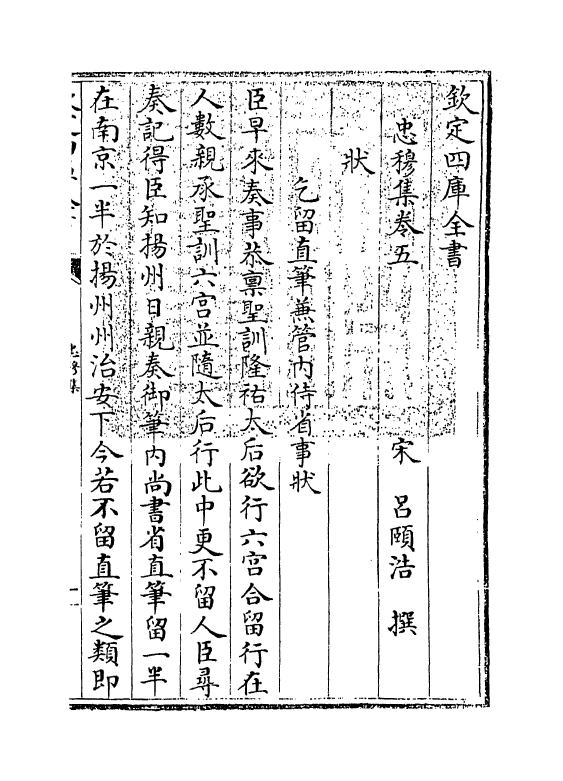 欽定四庫全書
忠穆集卷五　宋　呂頤浩　撰
狀
乞留直筆兼管内侍省事狀
臣早來奏事恭禀聖訓隆祐太后欲行六宫合留行在
人數親承聖訓六宫並隨太后行此中更不留人臣尋
奏記得臣知揚州日親奏御筆内尚書省直筆留一半
在南京一半於揚州州治安下今若不留直筆之類即
忠穆集